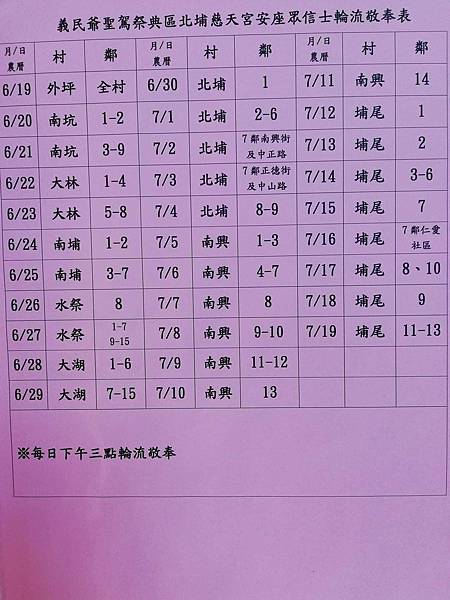 義民爺聖駕祭典區北埔慈天宮安座眾信士輪流敬奉表
月/日 農曆 村 鄰 月/日 農曆 村 鄰 月/日 農曆 村 鄰
6/19 外坪 全村 6/30 北埔 1 7/11 南興 14
6/20 南坑 1-2 7/1 北埔 2-6 7/12 埔尾 1
6/21 南坑 3-9 7/2 北埔 7鄰南興街及中正路 7/13 埔尾 2
6/22 大林 1-4 7/3 北埔 7鄰正德街及中山路 7/14 埔尾 3-6
6/23 大林 5-8 7/4 北埔 8-9 7/15 埔尾 7
6/24 南埔 1-2 7/5 南興 1-3 7/16 埔尾 7鄰仁愛社區
6/25 南埔 3-7 7/6 南興 4-7 7/17 埔尾 8、10
6/26 水祭 8 7/7 南興 8 7/18 埔尾 9
6/27 水祭 1-7 9-15 7/8 南興 9-10 7/19 埔尾 11-13
6/28 大湖 1-6 7/9 南興 11-12
6/29 大湖 7-15 7/10 南興 13
※每日下午三點輪流敬奉